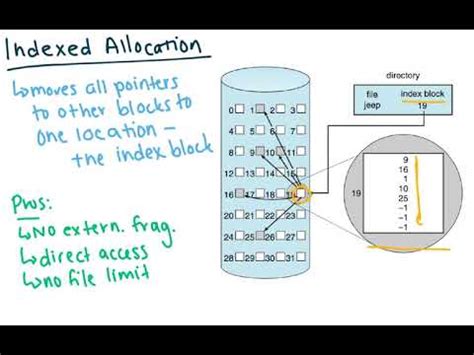 Indexed Allocation
↳moves all pointers
to other blocks to
one location –
the index block
Pros:
↳No extern. frag.
↳direct access
↳no file limit
directory
file index block
jeep 19
0 1 2 3
4 5 6 7
8 9 10 11
12 13 14 15
16 17 18 19
20 21 22 23
24 25 26 27
28 29 30 31
19
9
16
1
10
25
-1
-1
-1